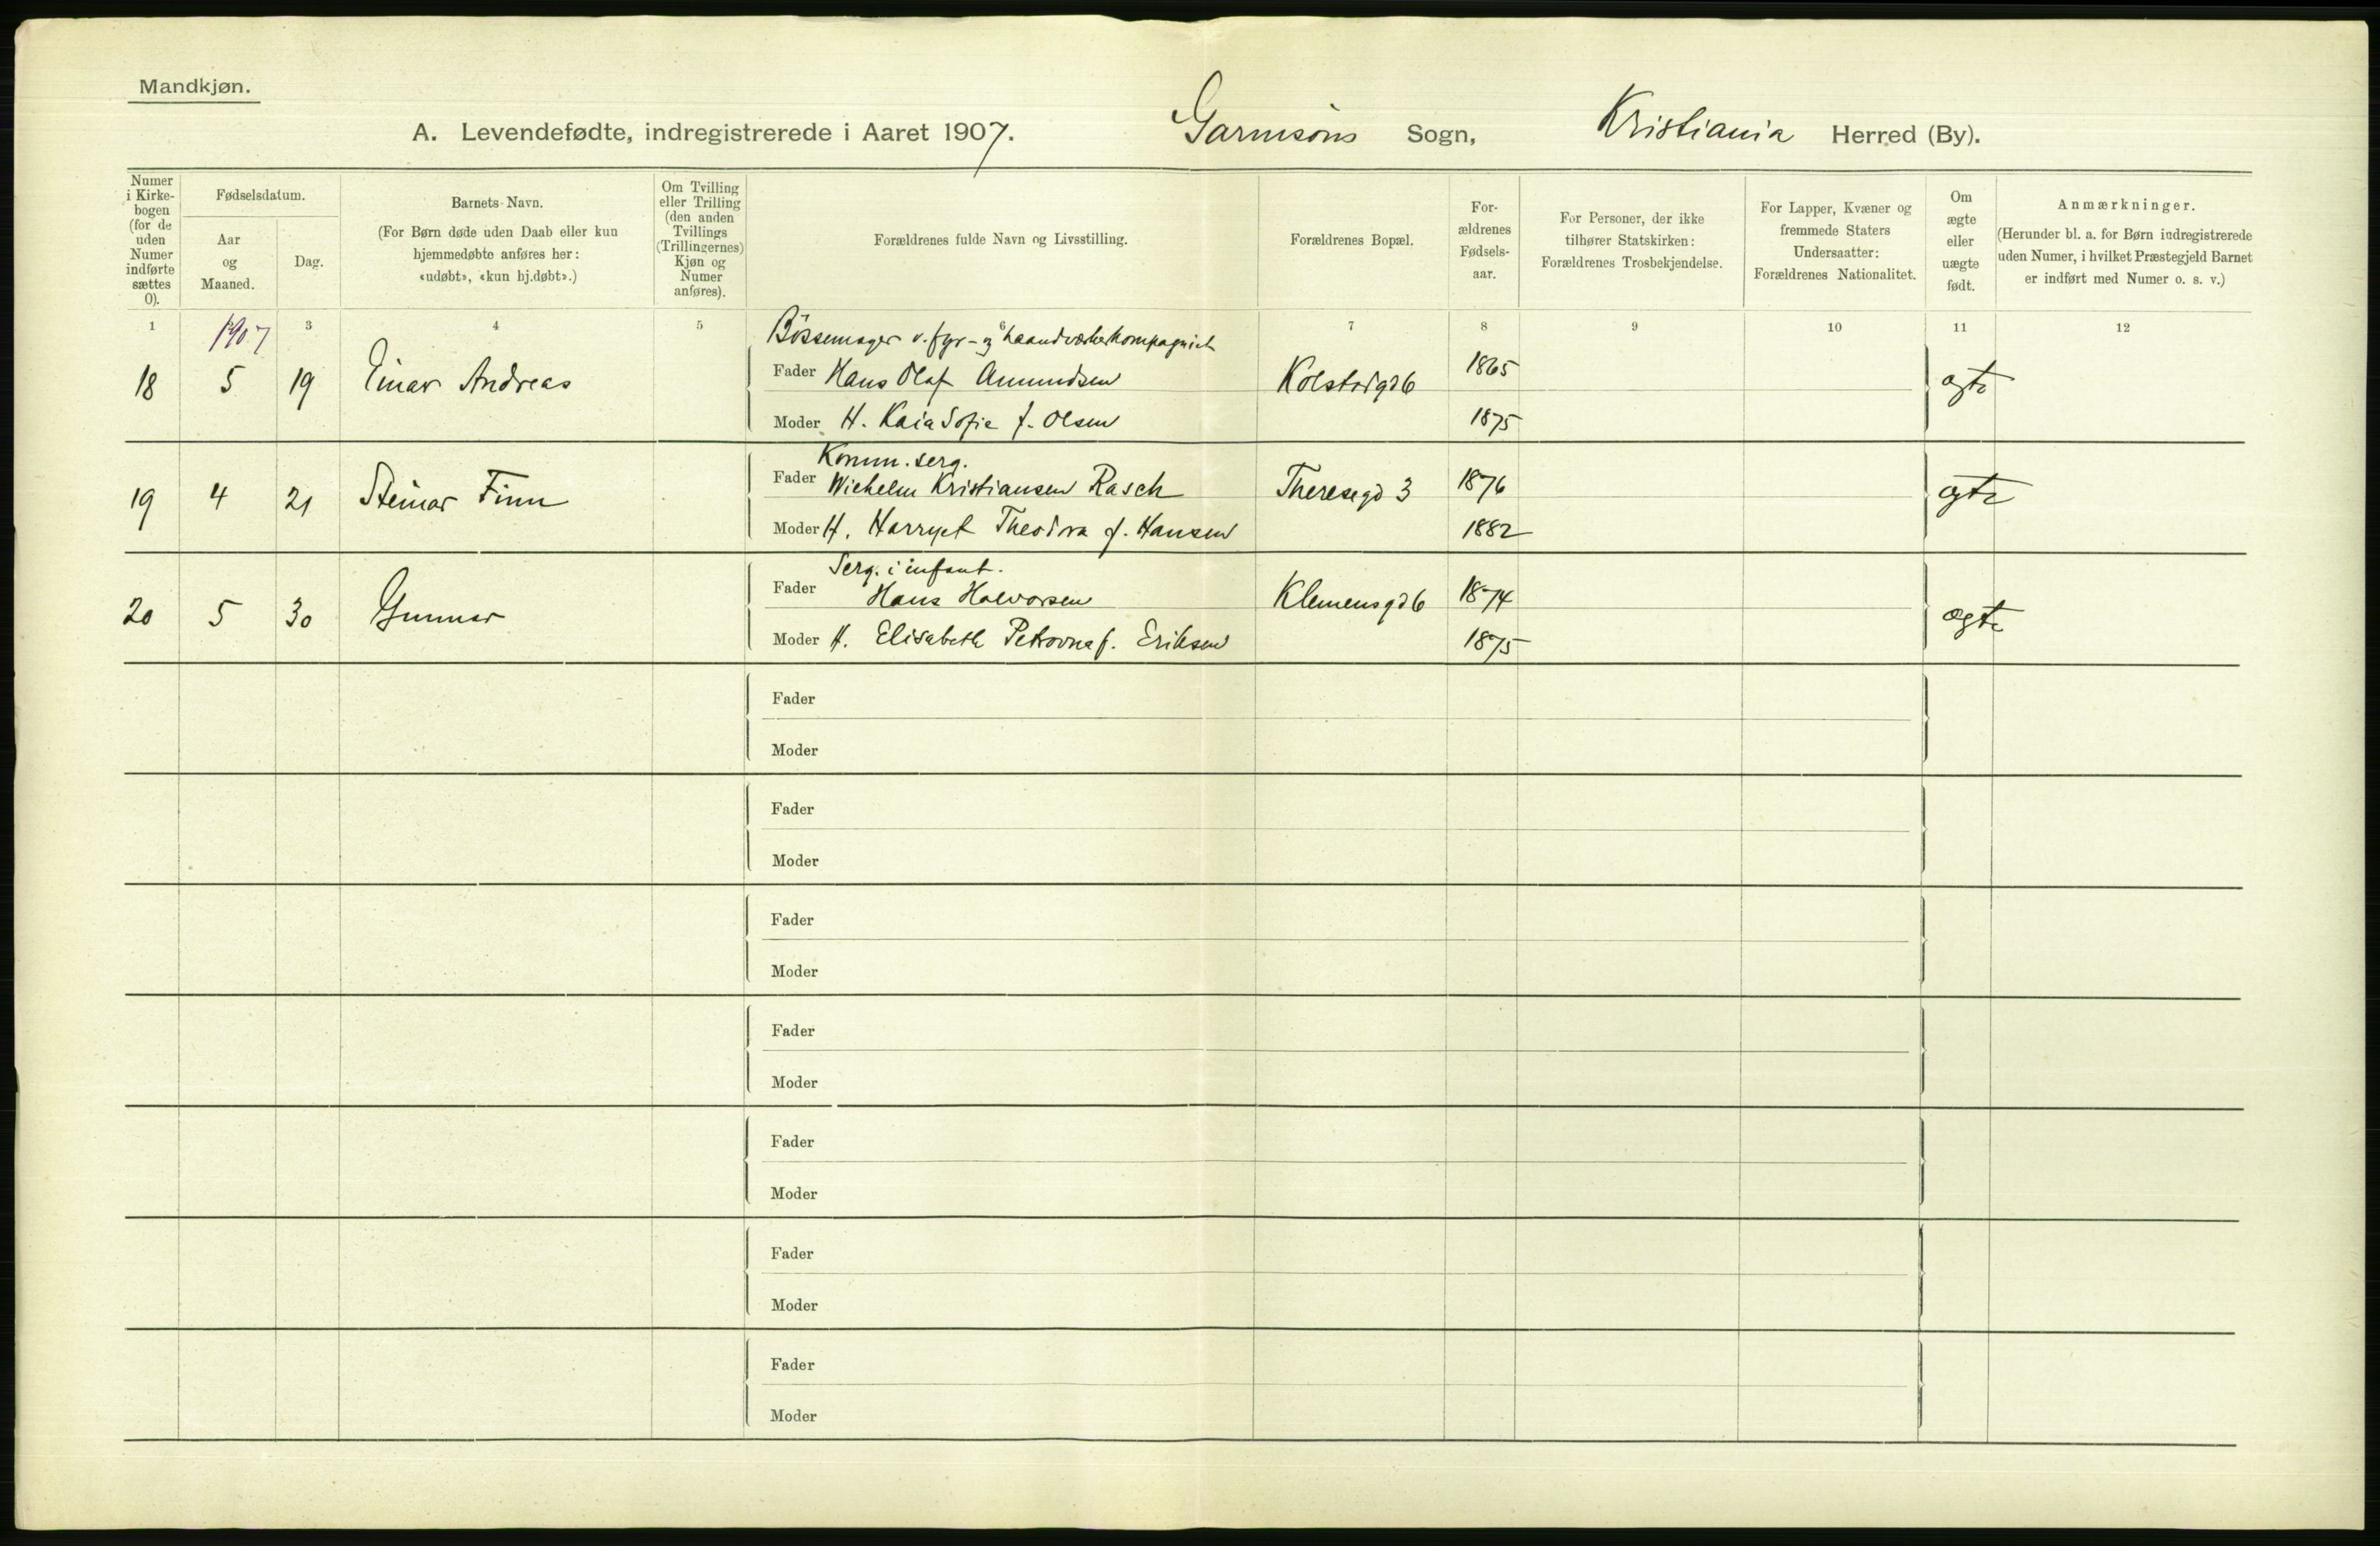 Mandkjøn.
A. Levendefødte, indregistrerede i Aaret 1907. Garnisons Sogn, Kristiania Herred (By).
Numer i Kirkebogen (for de uden Numer indførte sættes 0).
Fødselsdatum.
Aar og Maaned.
Dag.
Barnets Navn.
(For Børn døde uden Daab eller kun hjemmedøbte anføres her: «udøbt», «kun hj.døbt».)
Om Tvilling eller Trilling (den anden Tvillings (Trillingernes) Kjøn og Numer anføres).
Forældrenes fulde Navn og Livsstilling.
Forældrenes Bopæl.
Forældrenes Fødselsaar.
For Personer, der ikke tilhører Statskirken: Forældrenes Trosbekjendelse.
For Lapper, Kvæner og fremmede Staters Undersaatter: Forældrenes Nationalitet.
Om ægte eller uægte født.
Anmærkninger.
(Herunder bl. a. for Børn indregistrerede uden Numer, i hvilket Præstegjeld Barnet er indført med Numer o. s. v.)
1 3 4 5 6 7 8 9 10 11 12
1907
Bössemager v. fyr- og haandværkerkompagniet
18 5 19 Einar Andreas Fader Hans Olaf Amundsen Kolstadgd 6 1865 ægte
Moder H. Kaia Sofie f. Olsen 1875
Komm. serg.
19 4 21 Steinar Finn Fader Wilhelm Kristiansen Rasch Theresegd 3 1876 ægte
Moder H. Harryet Theodora f. Hansen 1882
Serg. i infant.
20 5 30 Gunnar Fader Hans Halvorsen Klemensgd 6 1874 ægte
Moder H. Elisabeth Petrovna f. Eriksen 1875
Fader
Moder
Fader
Moder
Fader
Moder
Fader
Moder
Fader
Moder
Fader
Moder
Fader
Moder